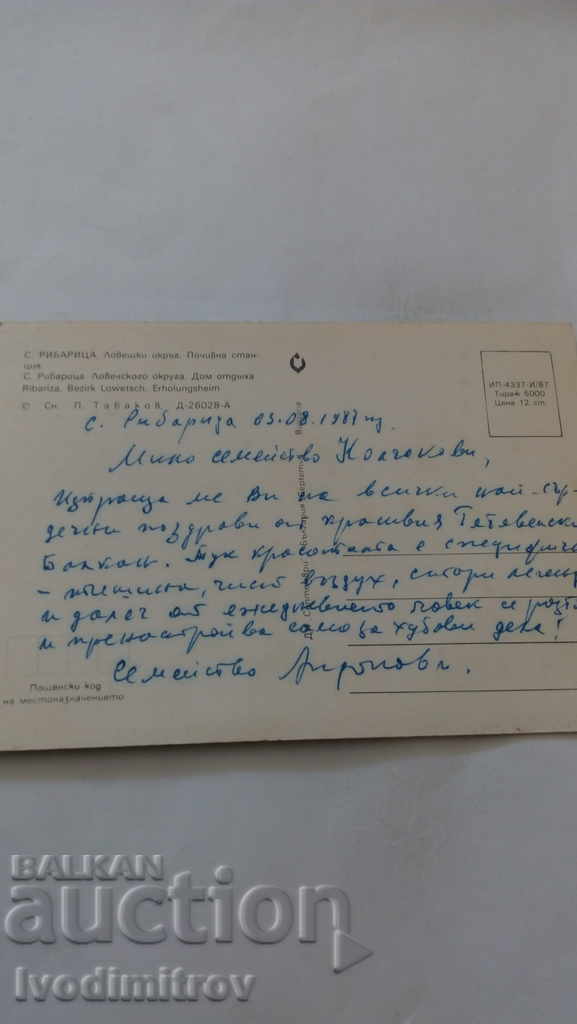 С. РИБАРИЦА. Ловешки окръг. Почивна стан-
ция
С. Рибарица Ловечского округа. Дом отдыха
Ribariza, Bezirk Lowetsch. Erholungsheim
© Сн. П. Табаков Д-26028-А
ИП-4337-И/87
Тираж 5000
Цена 12 ст.
с. Рибарица 03.08.1987 г.
Мило семейство Колчакови,
Изпраща ме Ви на всички най-сър-
дечни поздрави от красивия Тетевенски
Балкан. Тук красотата е специфична
- тишина, чист въздух, стари легенд
и далеч от ежедневието човек се
и пренастройва само за хубави дела!
Семейство
Пощенски код
на местоназначението
BALKAN
auction
Ivodimitrov